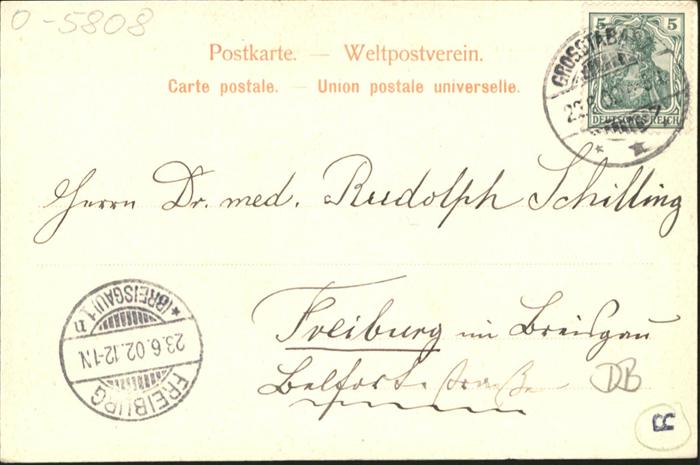 0-5808
Postkarte. — Weltpostverein.
Carte postale. — Union postale universelle.
5 5
DEUTSCHES REICH
GROSSTABARZ
Herrn Dr. med. Rudolph Schilling
Freiburg im Breisgau
Belfortstraße
DB
R
FREIBURG
23.6.02.12-1N
*(BREISGAU)1.